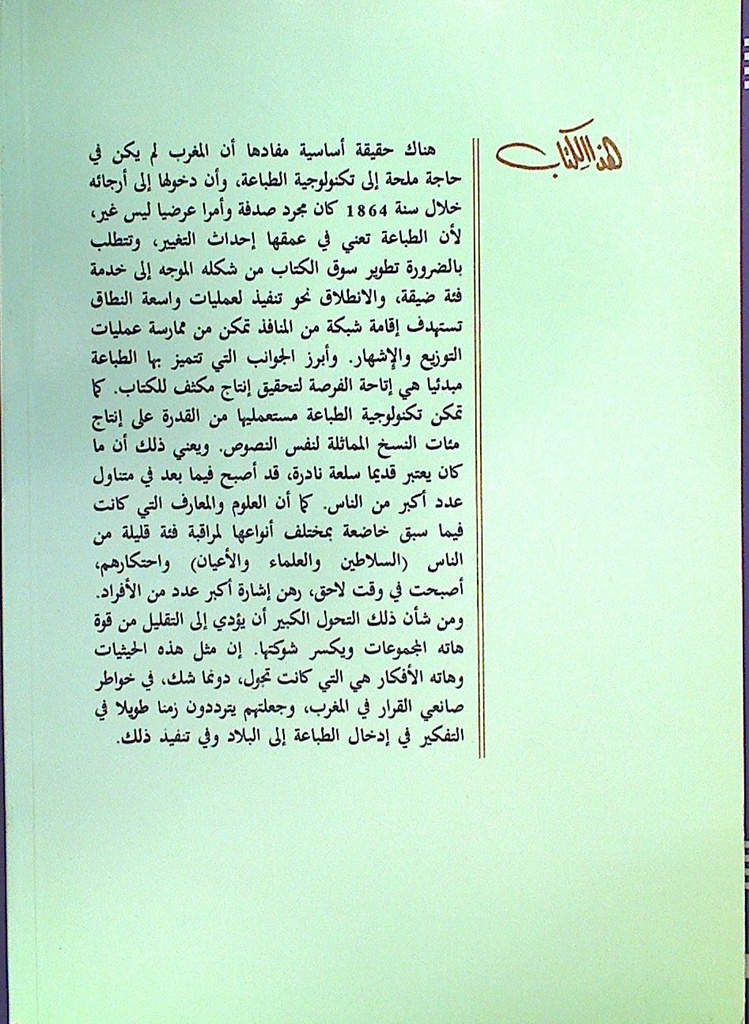 هذا الكتاب
هناك حقيقة أساسية مفادها أن المغرب لم يكن في
حاجة ملحة إلى تكنولوجية الطباعة، وأن دخولها إلى أرجائه
خلال سنة 1864 كان مجرد صدفة وأمرا عرضيا ليس غير،
لأن الطباعة تعني في عمقها إحداث التغيير، وتتطلب
بالضرورة تطوير سوق الكتاب من شكله الموجه إلى خدمة
فئة ضيقة، والانطلاق نحو تنفيذ لعمليات واسعة النطاق
تستهدف إقامة شبكة من المنافذ تمكن من ممارسة عمليات
التوزيع والإشهار. وأبرز الجوانب التي تتميز بها الطباعة
مبدئيا هي إتاحة الفرصة لتحقيق إنتاج مكثف للكتاب. كما
تمكن تكنولوجية الطباعة مستعمليها من القدرة على إنتاج
مئات النسخ المماثلة لنفس النصوص. ويعني ذلك أن ما
كان يعتبر قديما سلعة نادرة، قد أصبح فيما بعد في متناول
عدد أكبر من الناس. كما أن العلوم والمعارف التي كانت
فيما سبق خاضعة بمختلف أنواعها لمراقبة فئة قليلة من
الناس (السلاطين والعلماء والأعيان) واحتكارهم،
أصبحت في وقت لاحق، رهن إشارة أكبر عدد من الأفراد.
ومن شأن ذلك التحول الكبير أن يؤدي إلى التقليل من قوة
هاته المجموعات ويكسر شوكتها. إن مثل هذه الحيثيات
وهاته الأفكار هي التي كانت تجول، دونما شك، في خواطر
صانعي القرار في المغرب، وجعلتهم يترددون زمنا طويلا في
التفكير في إدخال الطباعة إلى البلاد وفي تنفيذ ذلك.